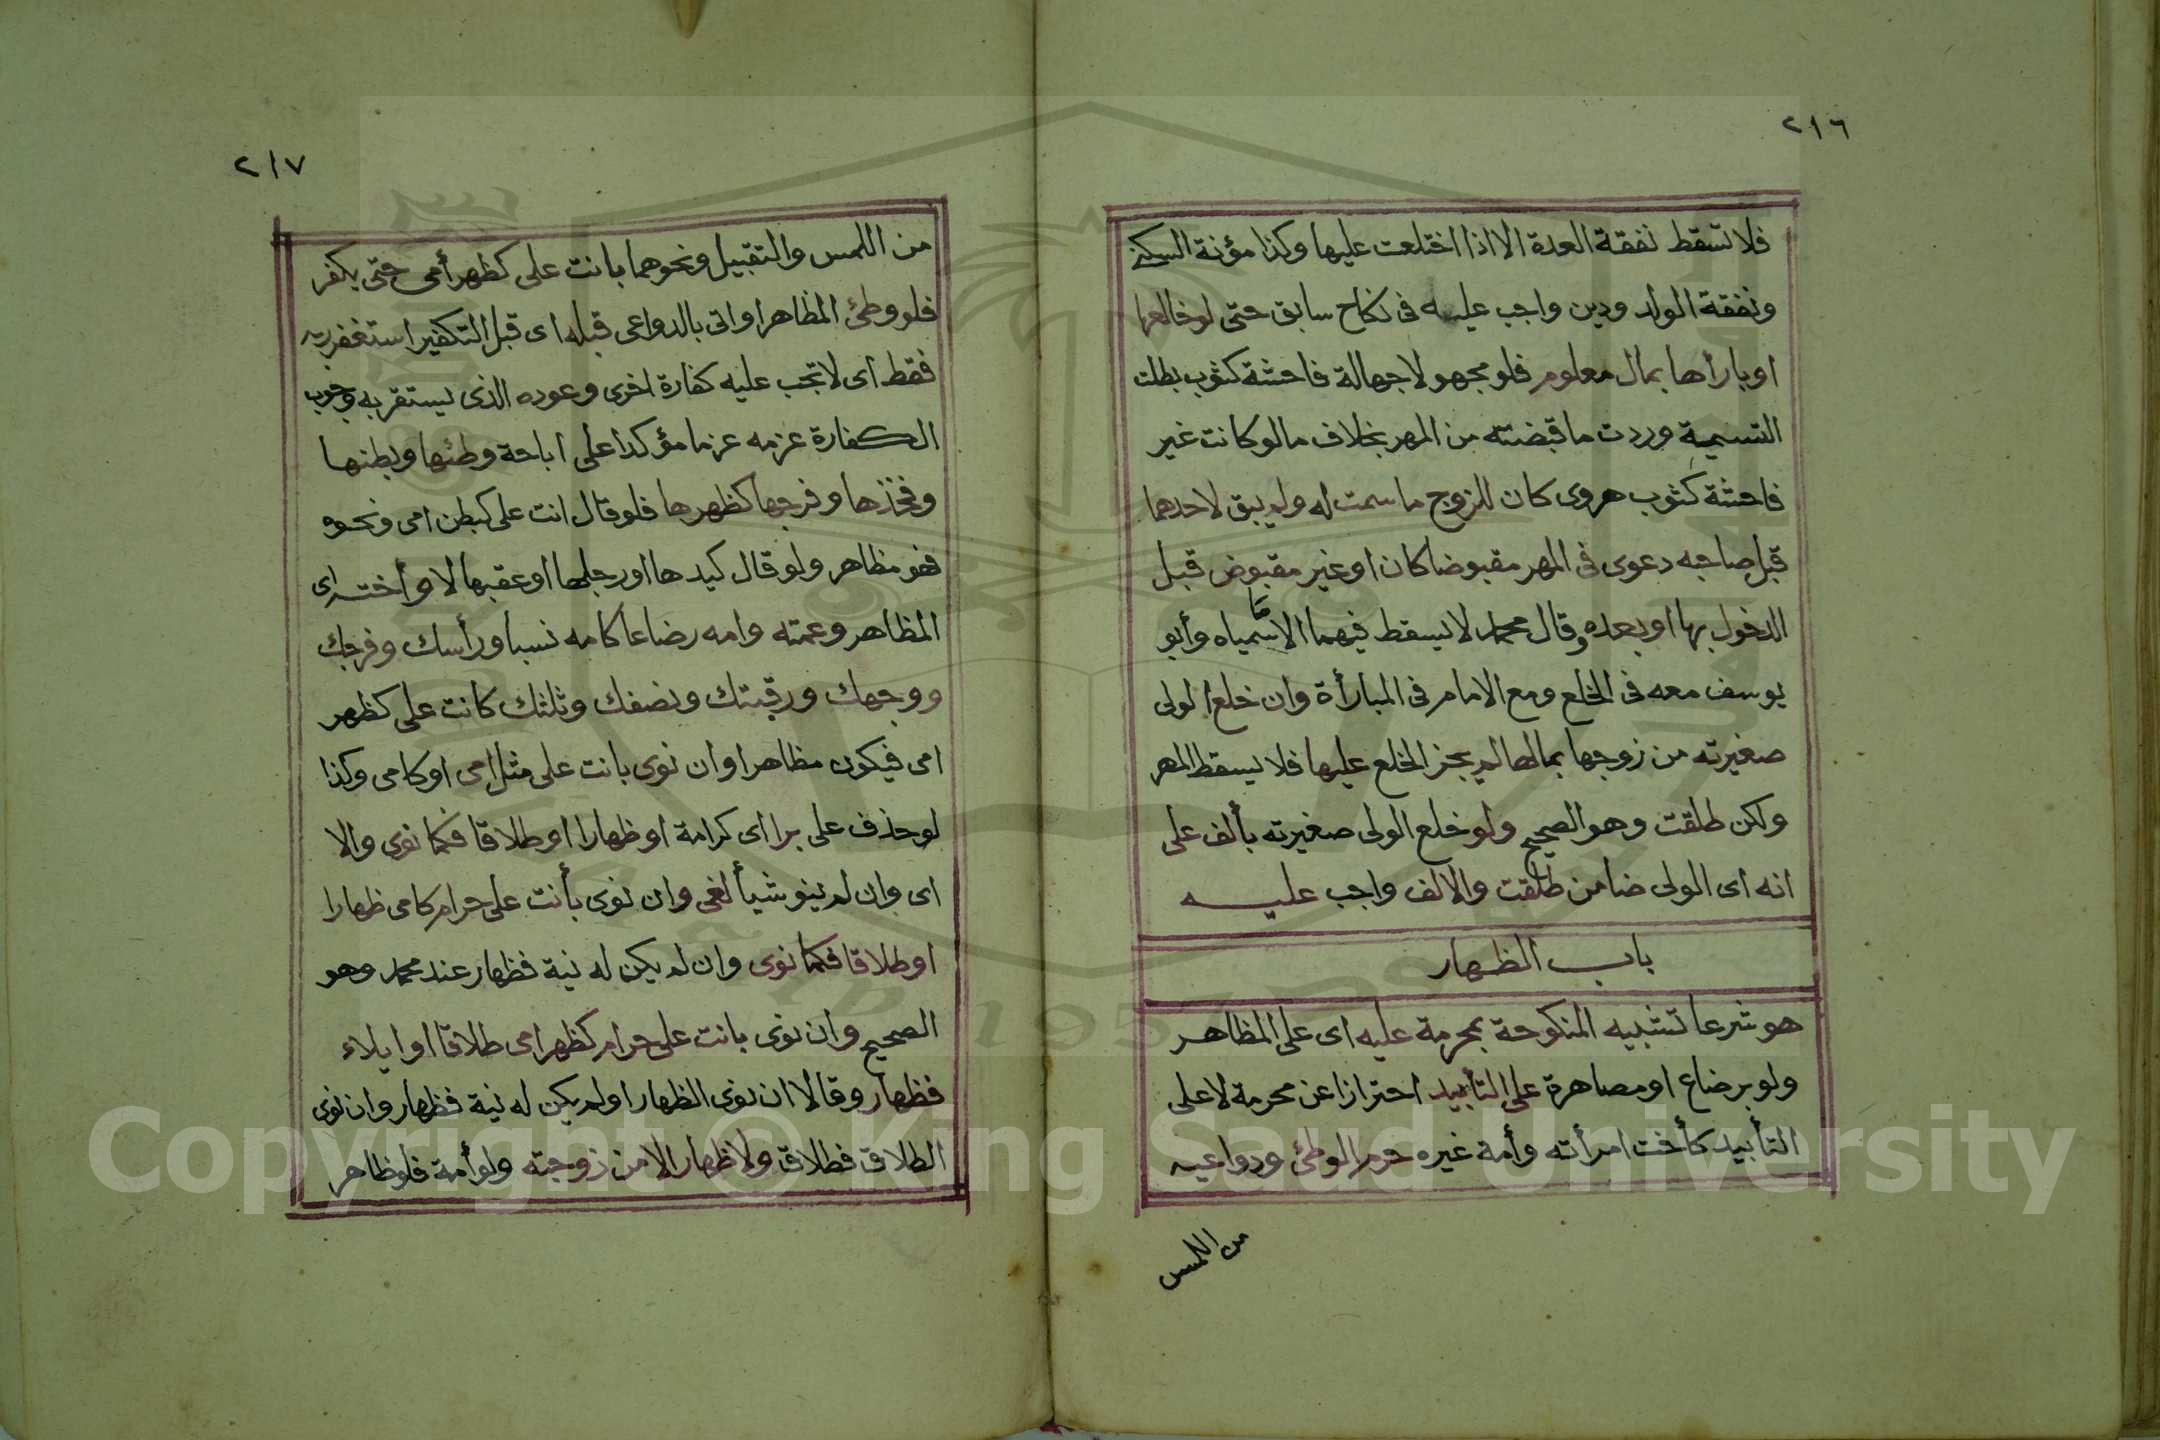 ٢١٦
فلا تسقط نفقة العدة الا اذا اختلعت عليها وكذا مؤنة السكنى
ونفقة الولد ودين واجب عليه فى نكاح سابق حتى لو خالعها
او بارأها بمال معلوم فلو مجهولا جهالة فاحشة كثوب بطلت
التسمية وردت ما قبضته من المهر بخلاف ما لو كانت غير
فاحشة كثوب هروى كان للزوج ما سمت له ولم يبق لاحدهما
قبل صاحبه دعوى فى المهر مقبوضا كان او غير مقبوض قبل
الدخول بها او بعده وقال محمد لا يسقط فيهما الا ما سمياه وأبو
يوسف معه فى الخلع ومع الامام فى المبارأة وان خلع الولى
صغيرته من زوجها بمالها لم يجز الخلع عليها فلا يسقط المهر
ولكن طلقت وهو الصحيح ولو خلع الولى صغيرته بألف على
انه اى الولى ضامن طلقت والالف واجب عليه
باب الظهار
هو شرعا تشبيه المنكوحة بمحرمة عليه اى على المظاهر
ولو برضاع او مصاهرة على التأبيد احترازا عن محرمة لا على
التأبيد كأخت امرأته وأمة غيره حرم الوطئ ودواعيه
من اللمس
٢١٧
من اللمس والتقبيل ونحوهما بانت على كظهر أمى حتى يكفر
فلو وطئ المظاهر او اتى بالدواعى قبله اى قبل التكفير استغفر ربه
فقط اى لا تجب عليه كفارة اخرى وعوده الذى يستقر به وجوب
الكفارة عزمه عزما مؤكدا على اباحة وطئها وبطنها
وفخذها وفرجها كظهرها فلو قال انت على كبطن امى ونحوه
فهو مظاهر ولو قال كيدها او رجلها او عقبها لا وأخته اى
المظاهر وعمته وامه رضاعا كامه نسبا ورأسك وفرجك
ووجهك ورقبتك ونصفك وثلثك كانت على كظهر
امى فيكون مظاهرا وان نوى بانت على مثل امى او كامى وكذا
لو حذف على برا اى كرامة او ظهارا او طلاقا فكما نوى والا
اى وان لم ينو شيأ لغى وان نوى بأنت على حرام كامى ظهارا
او طلاقا فكما نوى وان لم يكن له نية فظهار عند محمد وهو
الصحيح وان نوى بانت على حرام كظهر امى طلاقا او ايلاء
فظهار وقالا ان نوى الظهار او لم يكن له نية فظهار وان نوى
الطلاق فطلاق ولا ظهار الا من زوجته ولو أمة فلو ظاهر
Copyright © King Saud University